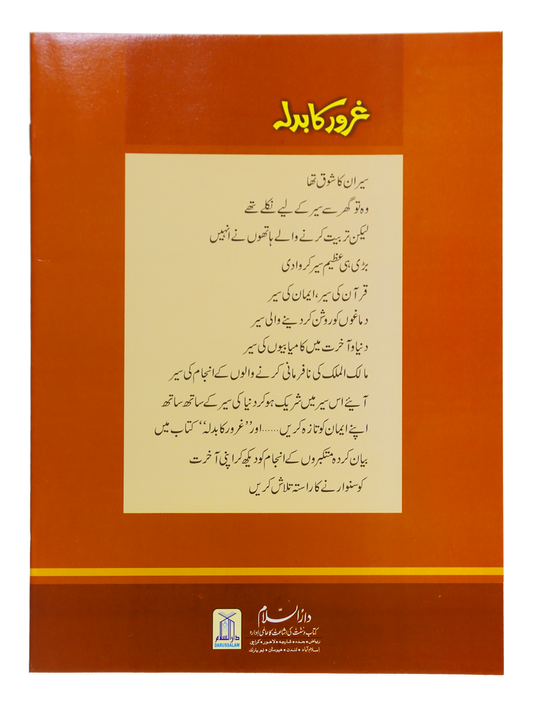 غرور کا بدلہ
سیر ان کا شوق تھا
وہ تو گھر سے سیر کے لیے نکلے تھے
لیکن تربیت کرنے والے ہاتھوں نے انہیں
بڑی ہی عظیم سیر کروا دی
قرآن کی سیر، ایمان کی سیر
دماغوں کو روشن کر دینے والی سیر
دنیا و آخرت میں کامیابیوں کی سیر
مالک الملک کی نافرمانی کرنے والوں کے انجام کی سیر
آیئے اس سیر میں شریک ہو کر دنیا کی سیر کے ساتھ ساتھ
اپنے ایمان کو تازہ کریں......اور ”غرور کا بدلہ“ کتاب میں
بیان کردہ متکبروں کے انجام کو دیکھ کر اپنی آخرت
کو سنوارنے کا راستہ تلاش کریں
دارالسلام
کتاب و سنت کی اشاعت کا عالمی ادارہ
ریاض • جدہ • شارجہ • لاہور • کراچی
اسلام آباد • لندن • ہیوسٹن • نیو یارک
دارالسلام
DARUSSALAM